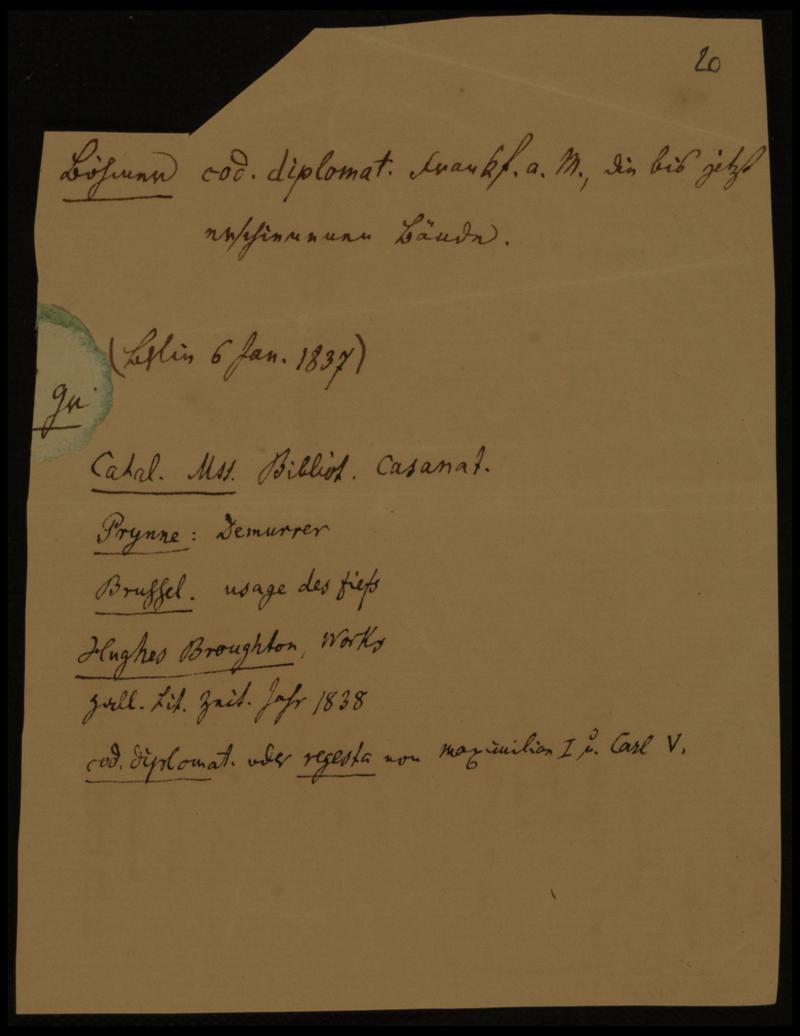 20
Böhmer cod. diplomat. Frankf. a. M., die bis jetzt
erschienenen Bände.
(Berlin 6 Jan. 1837)
Catal. Mss. Bibliot. Casanat.
Prynne: Demurrer
Brussel. usage des fiefs
Hughes Broughton, Works
Hall. Lit. Zeit. Jahr 1838
cod. diplomat. oder regesta von Maximilian I u. Carl V.